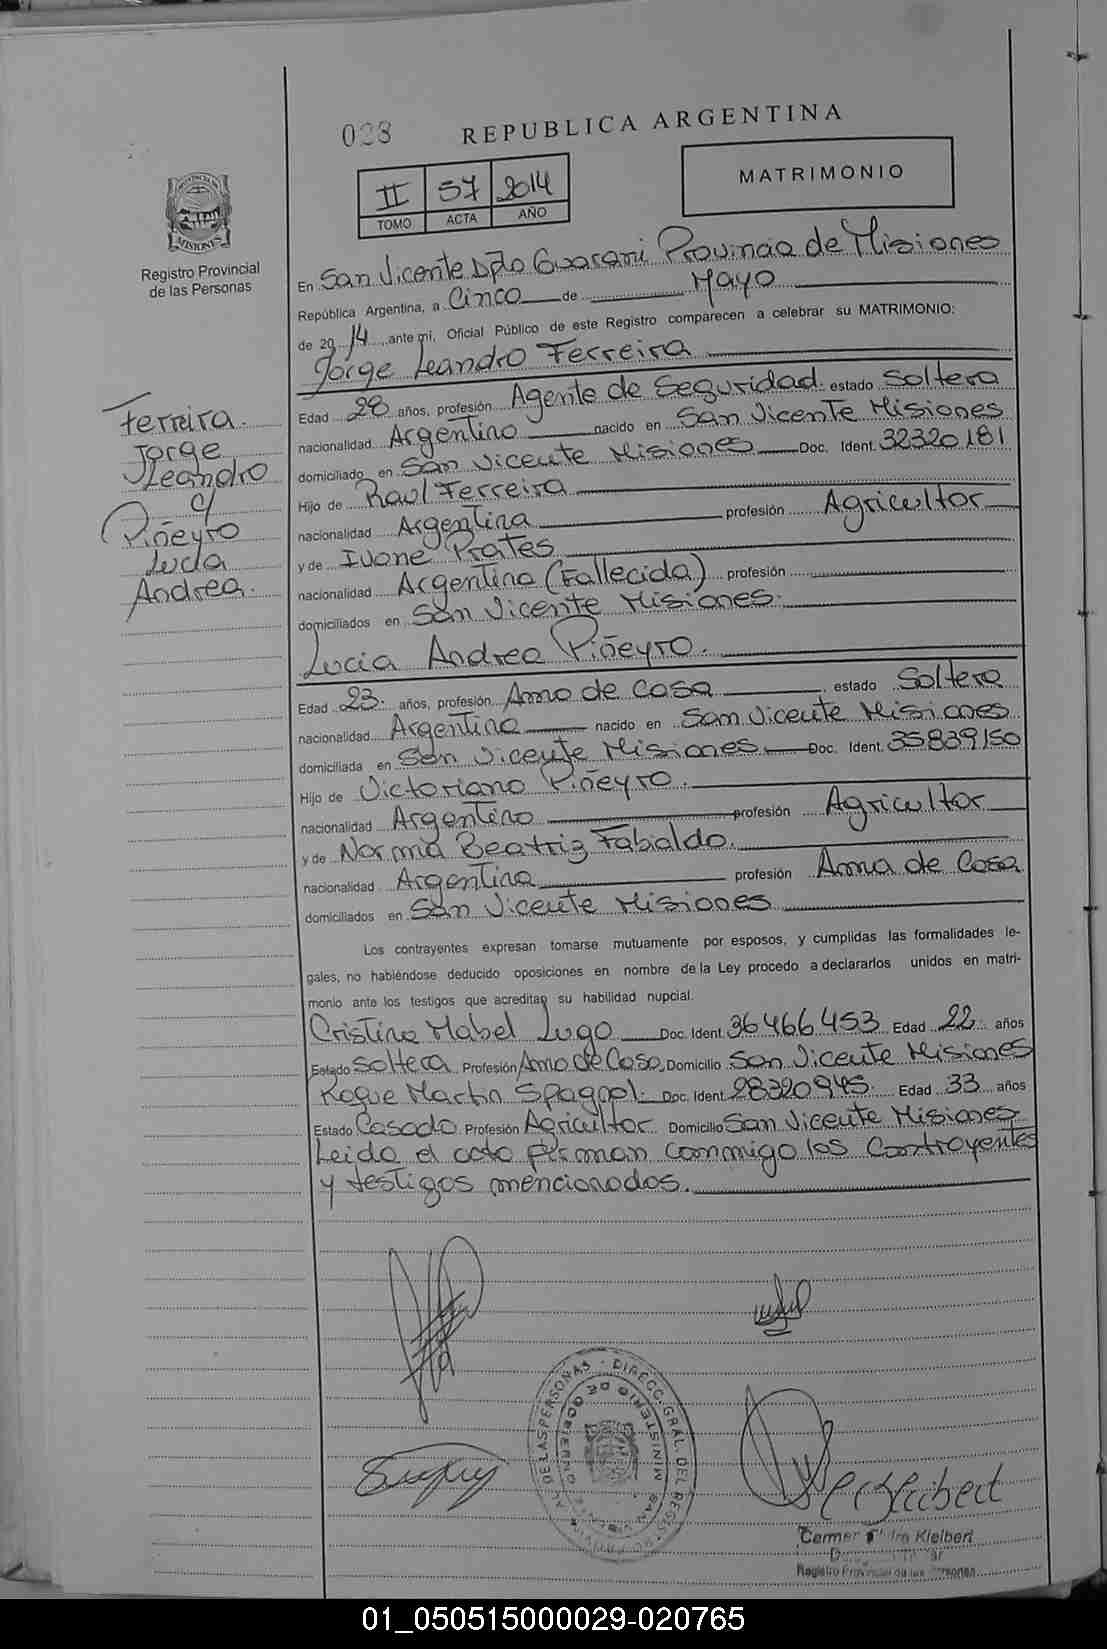 028
REPUBLICA ARGENTINA
II 57 2014
TOMO ACTA AÑO
MATRIMONIO
PROVINCIA DE MISIONES
Registro Provincial
de las Personas
En San Vicente Dpto Guarani Provincia de Misiones
República Argentina, a Cinco de Mayo
de 2014, ante mi, Oficial Público de este Registro comparecen a celebrar su MATRIMONIO:
Jorge Leandro Ferreira
Edad 28 años, profesión Agente de Seguridad. estado Soltero
nacionalidad Argentino nacido en San Vicente Misiones
domiciliado en San Vicente Misiones Doc. Ident. 32320181
Hijo de Raul Ferreira
nacionalidad Argentina profesión Agricultor
y de Ivone Prates
nacionalidad Argentina (Fallecida) profesión
domiciliados en San Vicente Misiones.
Lucia Andrea Piñeyro.
Edad 23. años, profesión Ama de Casa estado Soltera
nacionalidad Argentina nacido en San Vicente Misiones
domiciliada en San Vicente Misiones Doc. Ident. 35839150
Hijo de Victoriano Piñeyro.
nacionalidad Argentino profesión Agricultor
y de Norma Beatriz Fabialdo.
nacionalidad Argentina profesión Ama de Casa
domiciliados en San Vicente Misiones
Los contrayentes expresan tomarse mutuamente por esposos, y cumplidas las formalidades le-
gales, no habiéndose deducido oposiciones en nombre de la Ley procedo a declararlos unidos en matri-
monio ante los testigos que acreditan su habilidad nupcial.
Cristina Mabel Lugo Doc. Ident. 36466453 Edad 22 años
Estado Soltera Profesión Ama de Casa Domicilio San Vicente Misiones
Roque Martin Spagnol. Doc. Ident. 28320945. Edad 33 años
Estado Casado Profesión Agricultor Domicilio San Vicente Misiones
Leida el acta firman commigo los Contrayentes
y testigos mencionados.
Ferreira
Jorge
Leandro
c/
Piñeyro
Lucia
Andrea.
DIRECC. GRAL. DEL REGIS. PROVINCIAL DE LAS PERSONAS
MINISTERIO DE GOBIERNO
SAN VICENTE
Kleibert
Registro Provincial de las Personas
01_050515000029-020765